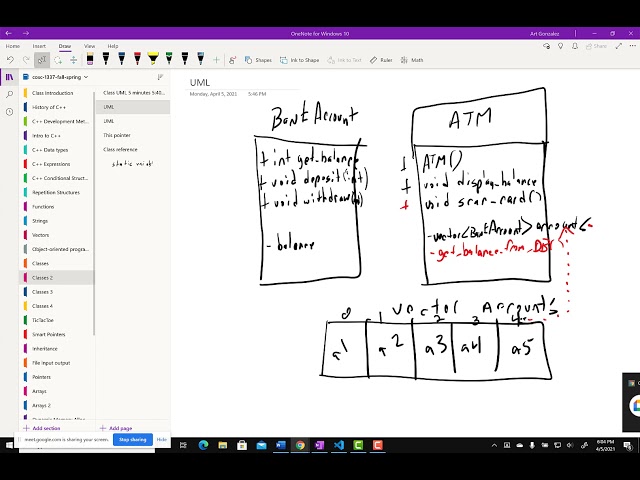 OneNote for Windows 10
Art Gonzalez
Home Insert Draw View Help
Shapes Ink to Shape Ink to Text Math
Share
cosc-1337-fall-spring
Class Introduction
History of C++
C++ Development Met...
Intro to C++
C++ Data types
C++ Expressions
C++ Conditional Struct...
Repetition Structures
Functions
Strings
Vectors
Object-oriented progra...
Classes
Classes 2
Classes 3
Classes 4
TicTacToe
Smart Pointers
Inheritance
File input output
Pointers
Arrays
Arrays 2
Dynamic Memory Alloc
+ Add section
Class UML 5 minutes 5:40...
UML
UML
This pointer
Class reference
+ Add page
UML
Monday, April 5, 2021 5:46 PM
static variabl
BankAccount
+ int get_balance
+ void deposit(int)
+ void withdraw(
- balance
ATM
+ ATM()
+ void display_balance
+ void scan_card()
- vector<BankAccount> accounts
- get_balance_from_Disk
Vector Accounts
0 1 2 3 4
a1 a2 a3 a4 a5
meet.google.com is sharing your screen.
Stop sharing
Hide
6:04 PM
4/5/2021